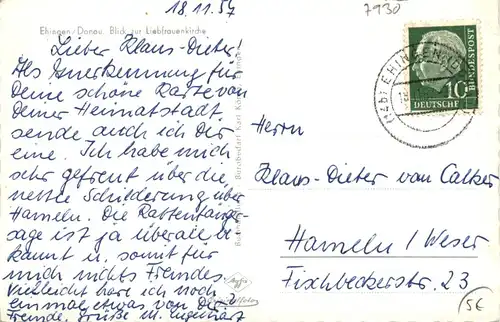 18.11.57
7930
Ehingen/Donau. Blick zur Liebfrauenkirche
Lieber Klaus-Dieter!
Als Anerkennung für
Deine schöne Karte von
Deiner Heimatstadt,
sende auch ich Dir
eine. Ich habe mich
sehr gefreut über die
nette Schilderung über
Hameln. Die Rattenfänger-
sage ist ja überall be-
kannt u. somit für
mich nichts Fremdes.
Vielleicht höre ich noch
einmal etwas von Dir?
Freunde. Grüße
Bürobedarf Karl
Agfa
(14b) EHINGEN
DEUTSCHE
BUNDESPOST
10
Herrn
Klaus-Dieter van Calker
Hameln / Weser
Fischbeckerstr. 23
5€